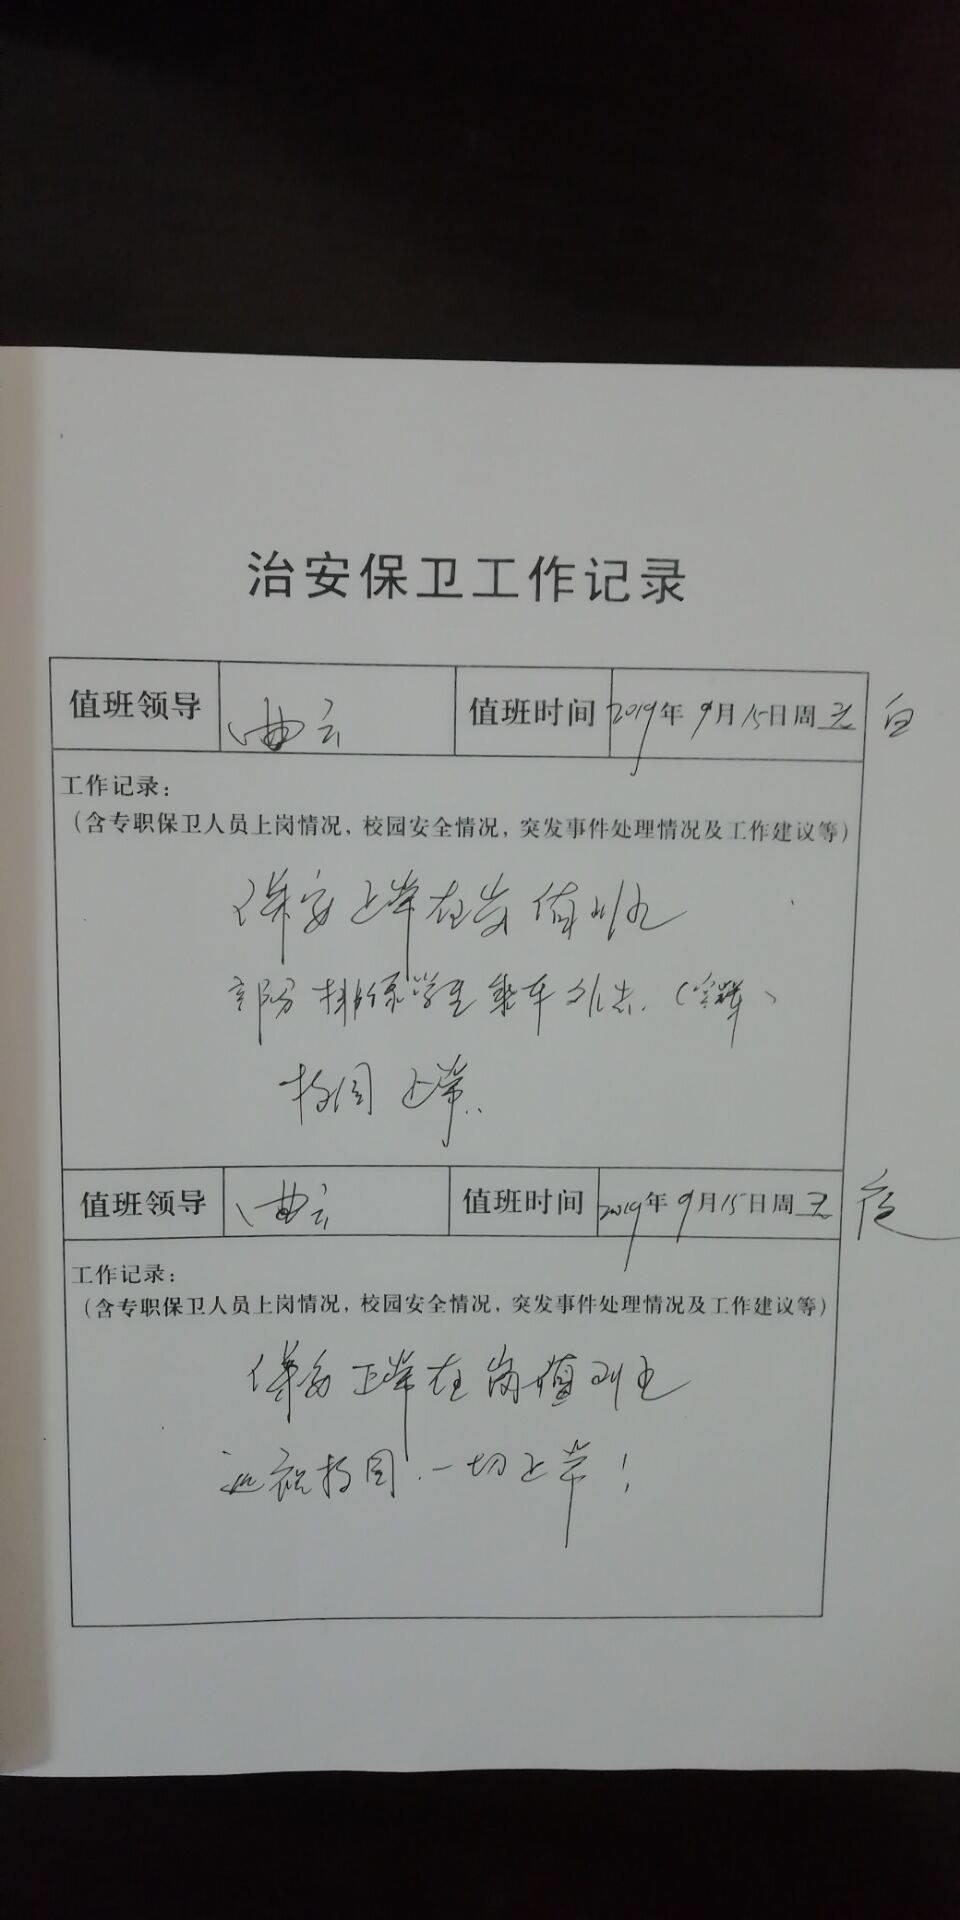 治安保卫工作记录
值班领导 曲云 值班时间 2019年9月15日周天 白
工作记录：
（含专职保卫人员上岗情况，校园安全情况，突发事件处理情况及工作建议等）
保安正常在岗值班
部分 学生乘车外出
校园正常
值班领导 曲云 值班时间 2019年9月15日周天 夜
工作记录：
（含专职保卫人员上岗情况，校园安全情况，突发事件处理情况及工作建议等）
保安正常在岗值班
巡视校园.一切正常！